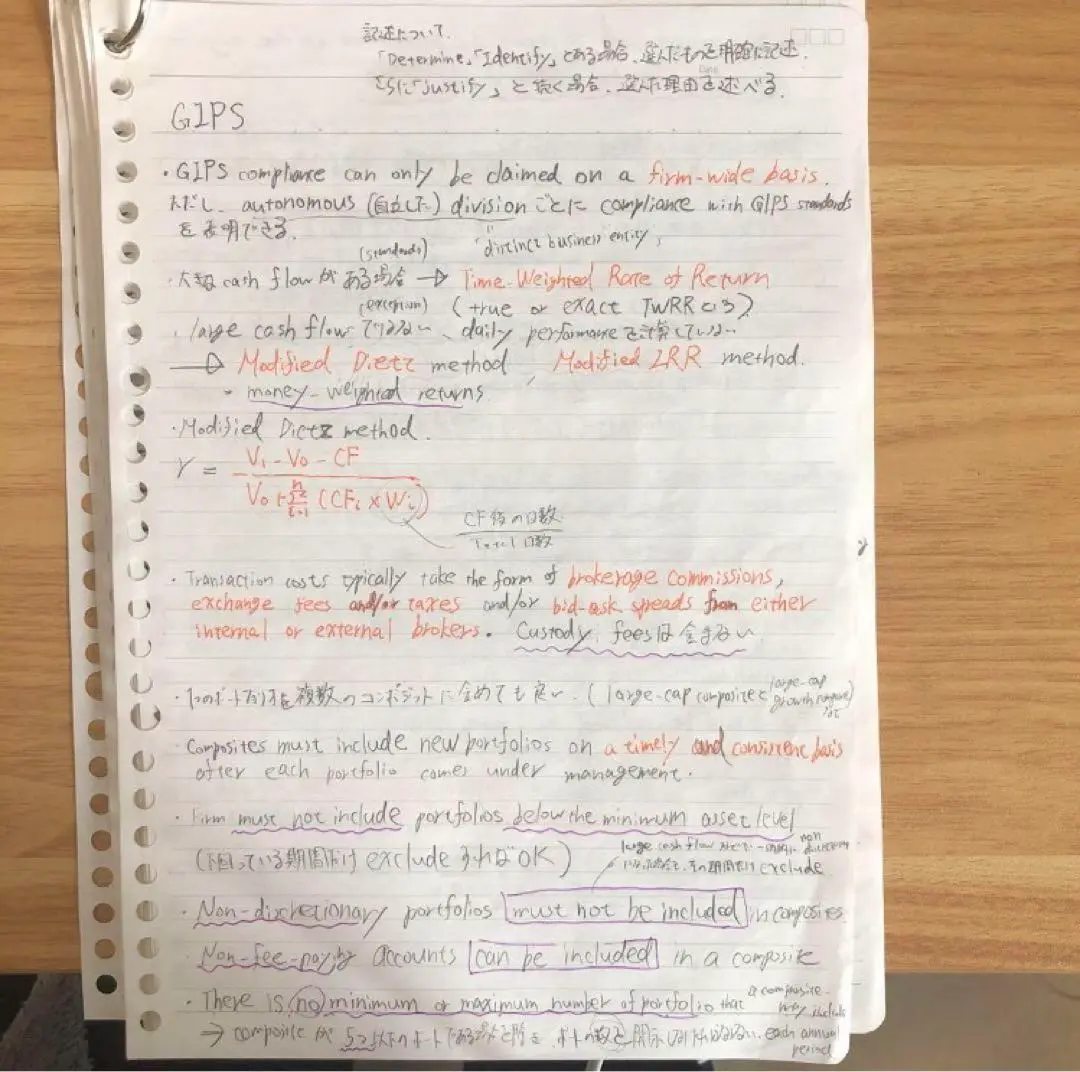 記述について.
「Determine」「Identify」とある場合、選んだものを明確に記述.
さらに「Justify」と続く場合、選んだ理由を述べる.
GIPS
・GIPS compliance can only be claimed on a firm-wide basis.
ただし、autonomous (自立した) division ごとに compliance with GIPS standards
を表明できる.
"distinct business entity"
(standards)
・大きな cash flow がある場合 → Time-Weighted Rate of Return
(exception) (true or exact TWRR という)
・large cash flow でない、daily performance を計算していない
→ Modified Dietz method, Modified IRR method.
- money-weighted returns
・Modified Dietz method.
r = V₁ - V₀ - CF
V₀ + n Σ i=1 (CFi × Wi)
CF後の日数
Total 日数
・Transaction costs typically take the form of brokerage commissions,
exchange fees and/or taxes and/or bid-ask spreads from either
internal or external brokers. Custody fees は含まない
・1つのポートフォリオを複数のコンポジットに含めても良い. (large-cap composite と large-cap growth composite など)
・Composites must include new portfolios on a timely and consistent basis
after each portfolio comes under management.
・Firm must not include portfolios below the minimum asset level
(下回っている期間だけ exclude すれば OK)
large cash flow non
その期間だけ exclude
・Non-discretionary portfolios must not be included in composites
・Non-fee-paying accounts can be included in a composite
・There is no minimum or maximum number of portfolio that a composite may include
→ composite が 5つ以下のポートである場合を除き、ポートの数を開示しなければならない. each annual period